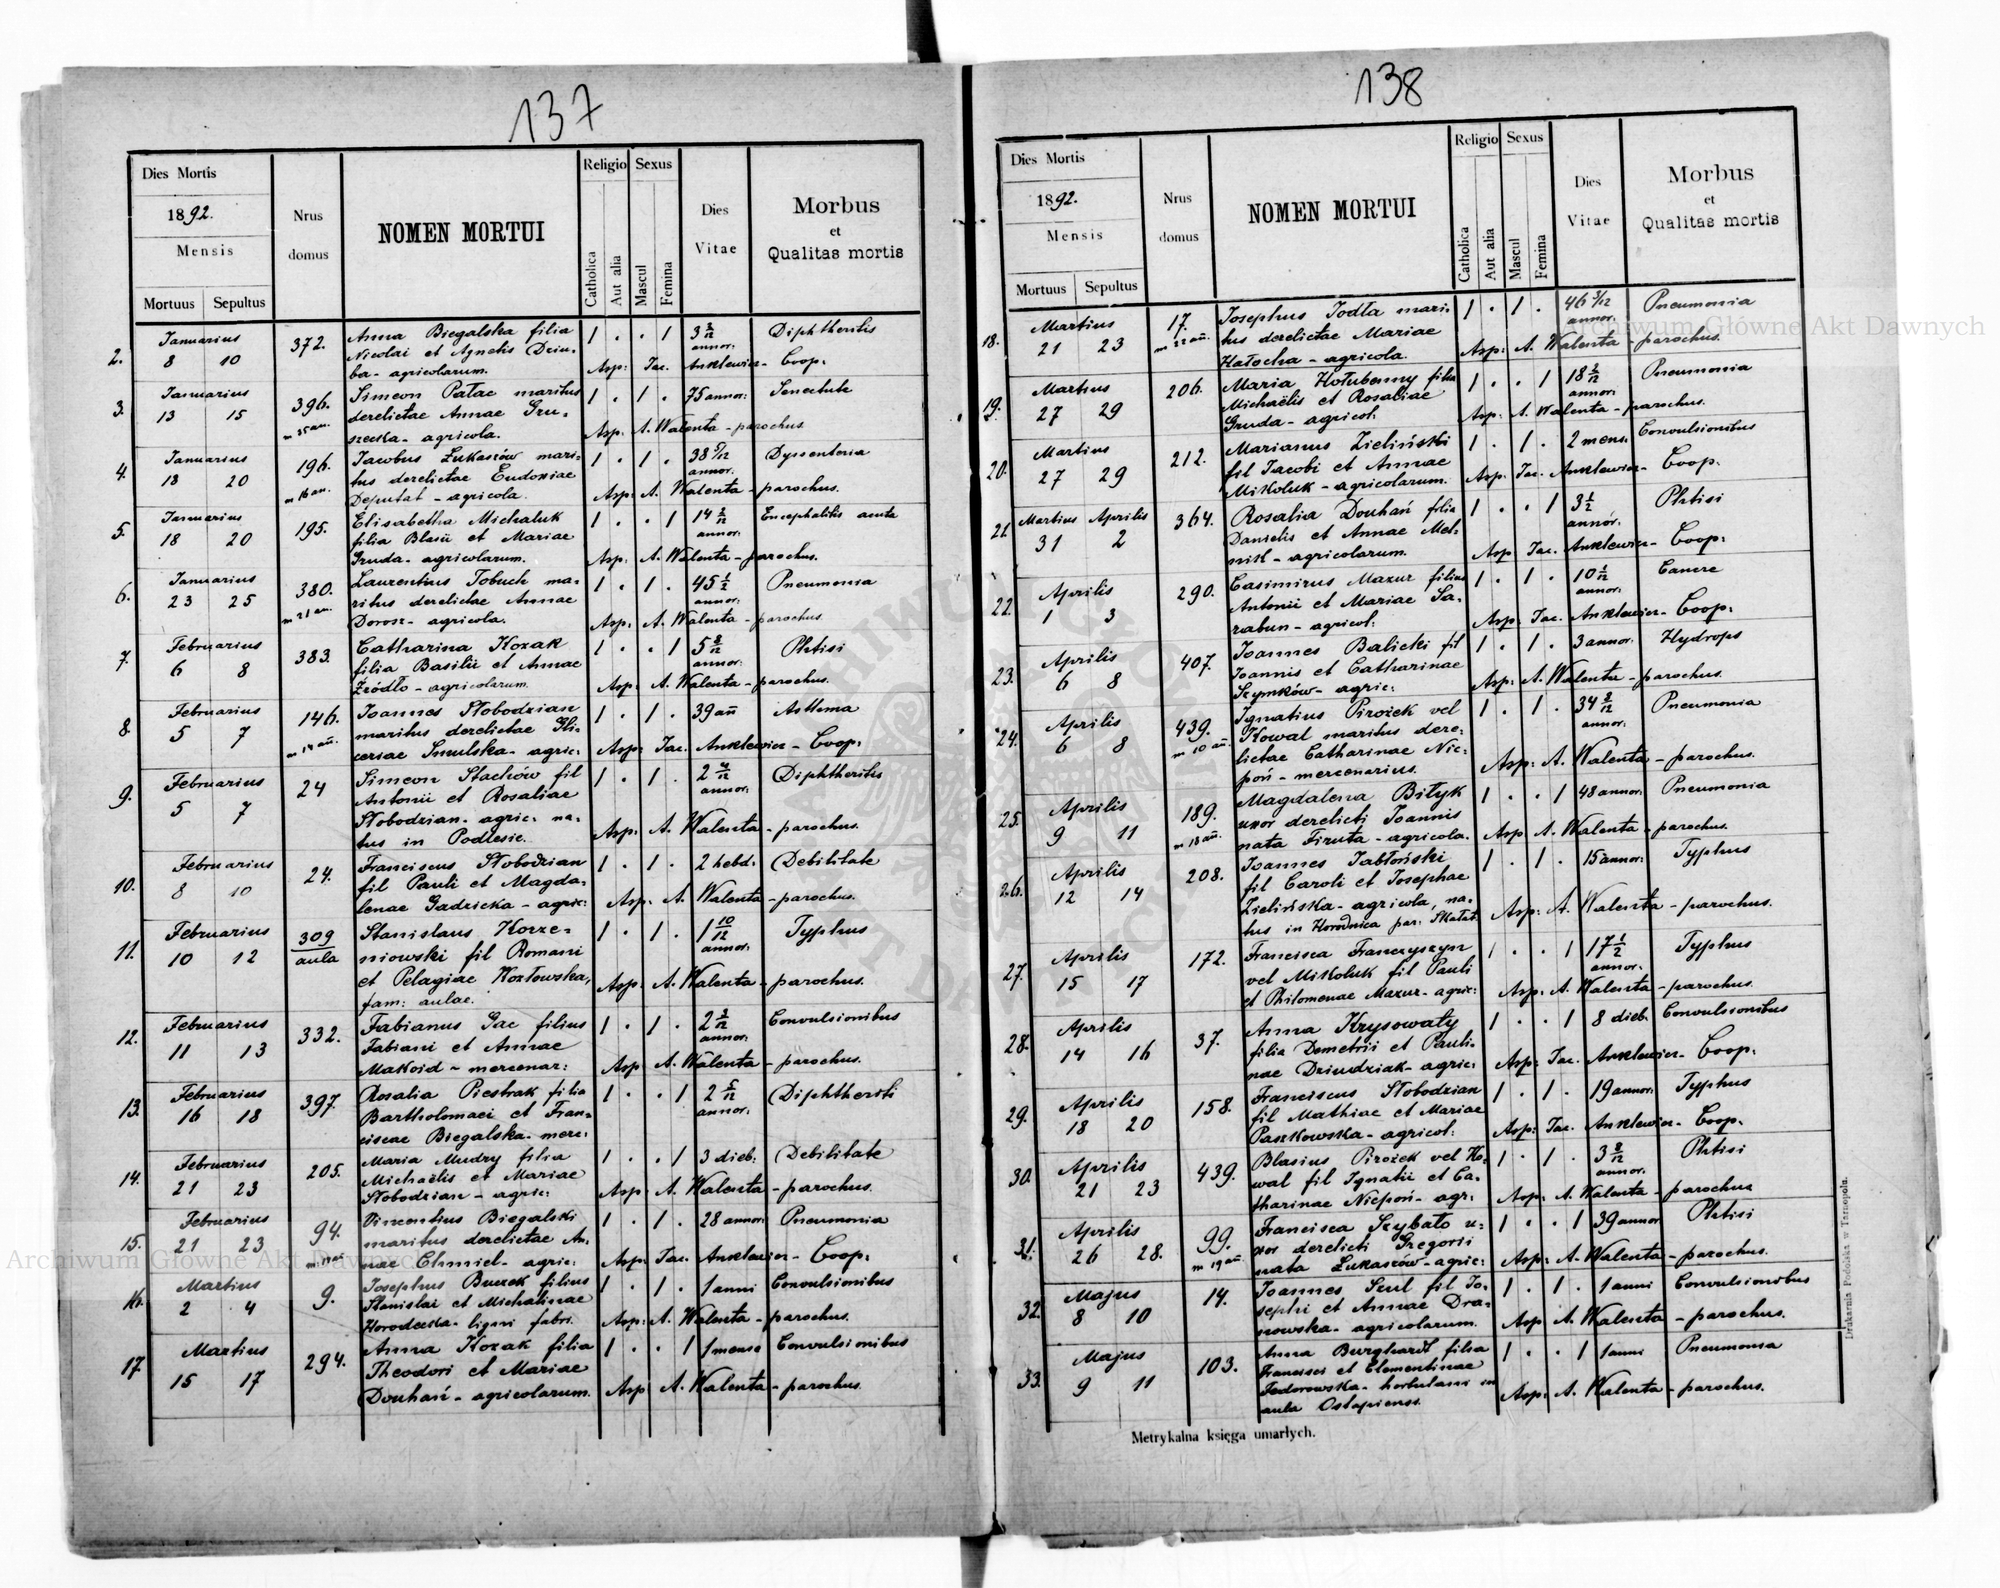 137
Dies Mortis
1892.
Mensis
Mortuus Sepultus
Nrus domus
NOMEN MORTUI
Religio
Catholica
Aut alia
Sexus
Mascul
Femina
Dies Vitae
Morbus
et
Qualitas mortis
2. Januarius 372. Anna Biegalska filia 1 . . 1 3 2/12 annor: Diphtheritis
8 10 Nicolai et Agnetis Dziu-
ba - agricolarum. Asp: Jac. Anklewicz - Coop.
3. Januarius 396. Simeon Patac maritus 1 . 1 . 75 annor: Senectute
13 15 m 35 an. derelictae Annae Gru-
szecka - agricola. Asp: A. Walenta - parochus.
4. Januarius 196. Jacobus Łukaszów mari- 1 . 1 . 38 5/12 annor. Dyssenteria
18 20 m 16 an. tus derelictae Eudoxiae
Deputat - agricola. Asp: A. Walenta - parochus.
5. Januarius 195. Elisabetha Michaluk 1 . . 1 14 2/12 annor: Encephalitis acuta
18 20 filia Blasii et Mariae
Gruda - agricolarum. Asp: A. Walenta - parochus.
6. Januarius 380. Laurentius Tobuch ma- 1 . 1 . 45 1/2 annor: Pneumonia
23 25 m 21 an. ritus derelictae Annae
Dorosz - agricola. Asp: A. Walenta - parochus.
7. Februarius 383. Catharina Kozak 1 . . 1 5 2/12 annor: Phtisi
6 8 filia Basilii et Annae
Źródło - agricolarum. Asp: A. Walenta - parochus.
8. Februarius 146. Joannes Słobodzian 1 . 1 . 39 añ Asthma
5 7 m 14 añ. maritus derelictae Gli-
ceriae Smulska - agric: Asp: Jac. Anklewicz - Coop:
9. Februarius 24 Simeon Stachów fil 1 . 1 . 2 4/12 annor: Diphtheritis
5 7 Antonii et Rosaliae
Słobodzian - agric: na-
tus in Podlesie. Asp: A. Walenta - parochus.
10. Februarius 24. Franciscus Słobodzian 1 . 1 . 2 hebd. Debilitate
8 10 fil Pauli et Magda-
lenae Gadzicka - agric: Asp: A. Walenta - parochus.
11. Februarius 309 aula Stanislaus Korze- 1 . 1 . 1 10/12 annor: Typhus
10 12 niowski fil Romani
et Pelagiae Kozłowska,
fam: aulae. Asp A. Walenta - parochus.
12. Februarius 332. Fabianus Gac filius 1 . 1 . 2 3/12 annor: Convulsionibus
11 13 Fabiani et Annae
Makoid - mercenar: Asp A. Walenta - parochus.
13. Februarius 397. Rosalia Piestrak filia 1 . . 1 2 5/12 annor. Diphtheriti
16 18 Bartholomaei et Fran-
ciscae Biegalska - merc:
14. Februarius 205. Maria Mudry filia 1 . . 1 3 dieb: Debilitate
21 23 Michaëlis et Mariae
Słobodzian - agric: Asp: A. Walenta - parochus.
15. Februarius 94. Vincentius Biegalski 1 . 1 . 28 annor: Pneumonia
21 23 maritus derelictae An-
nae Chmiel - agric: Asp: Jac. Anklewicz - Coop:
16. Martius 9. Josephus Buczek filius 1 . 1 . 1 anni Convulsionibus
2 4 Stanislai et Michalinae
Horodecka - ligni fabri. Asp: A. Walenta - parochus.
17. Martius 294. Anna Kozak filia 1 . . 1 1 mense Convulsionibus
15 17 Theodori et Mariae
Douhań - agricolarum. Asp A. Walenta - parochus.
138
Dies Mortis
1892.
Mensis
Mortuus Sepultus
Nrus domus
NOMEN MORTUI
Religio
Catholica
Aut alia
Sexus
Mascul
Femina
Dies Vitae
Morbus
et
Qualitas mortis
18. Martius 17. Josephus Jodła mari- 1 . 1 . 46 3/12 annor. Pneumonia
21 23 m 22 añ. tus derelictae Mariae
Hałocha - agricola. Asp: A. Walenta - parochus.
19. Martius 206. Maria Hołubenny filia 1 . . 1 18 2/12 annor: Pneumonia
27 29 Michaëlis et Rosaliae
Gruda - agricol: Asp: A. Walenta - parochus.
20. Martius 212. Marianus Zieliński 1 . 1 . 2 mens. Convulsionibus
27 29 fil Jacobi et Annae
Mikoluk - agricolarum. Asp: Jac. Anklewicz - Coop.
21 Martius Aprilis 364. Rosalia Douhań filia 1 . . 1 3 1/2 annor. Phtisi
31 2 Danielis et Annae Mel-
nik - agricolarum. Asp Jac. Anklewicz - Coop:
22. Aprilis 290. Casimirus Mazur filius 1 . 1 . 10 1/12 annor: Cancre
1 3 Antonii et Mariae Sa-
rabun - agricol: Asp: Jac. Anklewicz - Coop:
23. Aprilis 407. Joannes Balicki fil 1 . 1 . 3 annor: Hydrops
6 8 Joannis et Catharinae
Szymków - agric: Asp: A. Walenta - parochus.
24. Aprilis 439. Ignatius Pirożek vel 1 . 1 . 34 2/12 annor: Pneumonia
6 8 m 10 añ. Kowal maritus dere-
lictae Catharinae Nie-
poń - mercenarius. Asp: A. Walenta - parochus.
25. Aprilis 189. Magdalena Biłyk 1 . . 1 48 annor: Pneumonia
9 11 m 18 añ. uxor derelicti Joannis
nata Firuta - agricola. Asp A. Walenta - parochus.
26. Aprilis 208. Joannes Jabłoński 1 . 1 . 15 annor: Typhus
12 14 fil Caroli et Josephae
Zielińska - agricola, na-
tus in Horodnica par: Skałat. Asp: A. Walenta - parochus.
27. Aprilis 172. Francisca Franczyszyn 1 . . 1 17 1/2 annor. Typhus
15 17 vel Mikoluk fil Pauli
et Philomenae Mazur - agric: Asp: A. Walenta - parochus.
28. Aprilis 37. Anna Krysowaty 1 . . 1 8 dieb. Convulsionibus
14 16 filia Demetrii et Pauli-
nae Dziudziak - agric: Asp: Jac. Anklewicz - Coop:
29. Aprilis 158. Franciscus Słobodzian 1 . 1 . 19 annor: Typhus
18 20 fil Mathiae et Mariae
Paszkowska - agricol: Asp: Jac. Anklewicz - Coop.
30. Aprilis 439. Blasius Pirożek vel Ko- 1 . 1 . 3 2/12 annor. Phtisi
21 23 wal fil Ignatii et Ca-
tharinae Niepoń - agr: Asp: A. Walenta - parochus
31. Aprilis 99. Francisca Szybało u- 1 . . 1 39 annor Phtisi
26 28. m 19 añ xor derelicti Gregorii
nata Łukaszów - agric: Asp: A. Walenta - parochus.
32. Majus 14. Joannes Szul fil Jo- 1 . 1 . 1 anni Convulsionibus
8 10 sephi et Annae Dra-
nowska - agricolarum. Asp A. Walenta - parochus.
33. Majus 103. Anna Burghardt filia 1 . . 1 1 anni Pneumonia
9 11 Francisci et Clementinae
Fedorowska - hortulani in
aula Ostapiensi. Asp: A. Walenta - parochus.
Metrykalna księga umarłych.
Drukarnia Podolska w Tarnopolu.
Archiwum Główne Akt Dawnych
Archiwum Główne Akt Dawnych